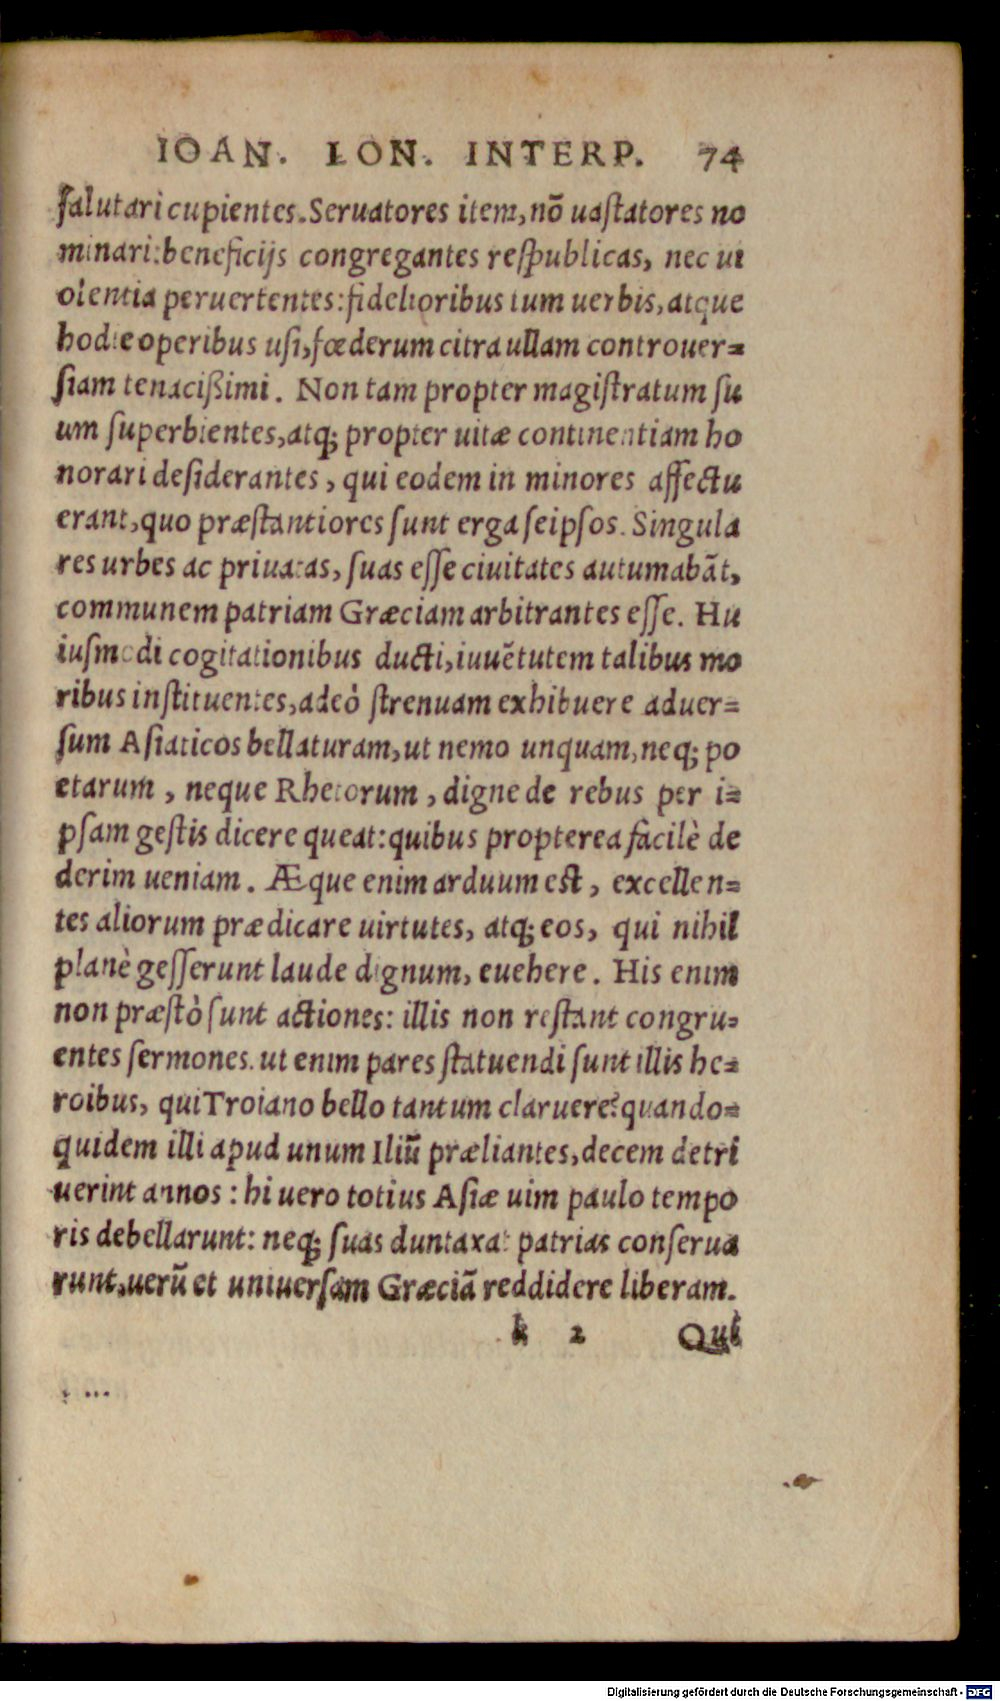 IOAN. LON. INTERP. 74
ſalutari cupientes. Seruatores item, nõ uaſtatores no
minari: beneficijs congregantes reſpublicas, nec ui
olentia peruertentes: fidelioribus tum uerbis, atque
hodie operibus uſi, fœderum citra ullam controuer=
ſiam tenacißimi. Non tam propter magiſtratum ſu
um ſuperbientes, atq; propter uitæ continentiam ho
norari deſiderantes, qui eodem in minores affectu
erant, quo præſtantiores ſunt erga ſeipſos. Singula
res urbes ac priuatas, ſuas eſſe ciuitates autumabãt,
communem patriam Græciam arbitrantes eſſe. Hu
iuſmodi cogitationibus ducti, iuuẽtutem talibus mo
ribus inſtituentes, adeò ſtrenuam exhibuere aduer=
ſum Aſiaticos bellaturam, ut nemo unquam, neq; po
etarum, neque Rhetorum, digne de rebus per i=
pſam geſtis dicere queat: quibus propterea facilè de
derim ueniam. Æque enim arduum est, excellen=
tes aliorum prædicare uirtutes, atq; eos, qui nihil
planè geſſerunt laude dignum, euehere. His enim
non præſtò ſunt actiones: illis non reſtant congru=
entes ſermones. ut enim pares ſtatuendi ſunt illis he=
roibus, qui Troiano bello tantum claruere? quando=
quidem illi apud unum Iliũ præliantes, decem detri
uerint annos: hi uero totius Aſiæ uim paulo tempo
ris debellarunt: neq; ſuas duntaxat patrias conſerua
runt, uerũ et uniuerſam Græciã reddidere liberam.
k 2 Qui
Digitalisierung gefördert durch die Deutsche Forschungsgemeinschaft - DFG